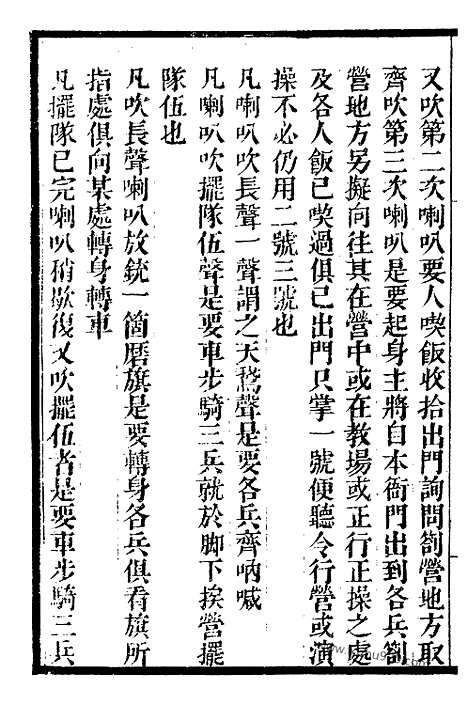 又吹第二次喇叭要人喫飯收拾出門詢問劄營地方取
齊吹第三次喇叭是要起身主將自本衙門出到各兵劄
營地方另擬向往其在營中或在教場或正行正操之處
及各人飯已喫過俱已出門只掌一號便聽令行營或演
操不必仍用二號三號也
凡喇叭吹長聲一聲謂之天鵞聲是要各兵齊吶喊
凡喇叭吹擺隊伍聲是要車步騎三兵就於脚下挨營擺
隊伍也
凡吹長聲喇叭放銃一箇磨旗是要轉身各兵俱看旗所
指處俱向某處轉身轉車
凡擺隊已完喇叭稍歇復又吹擺伍者是要車步騎三兵